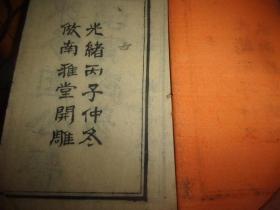 光緒丙子仲冬
倣南雅堂開雕